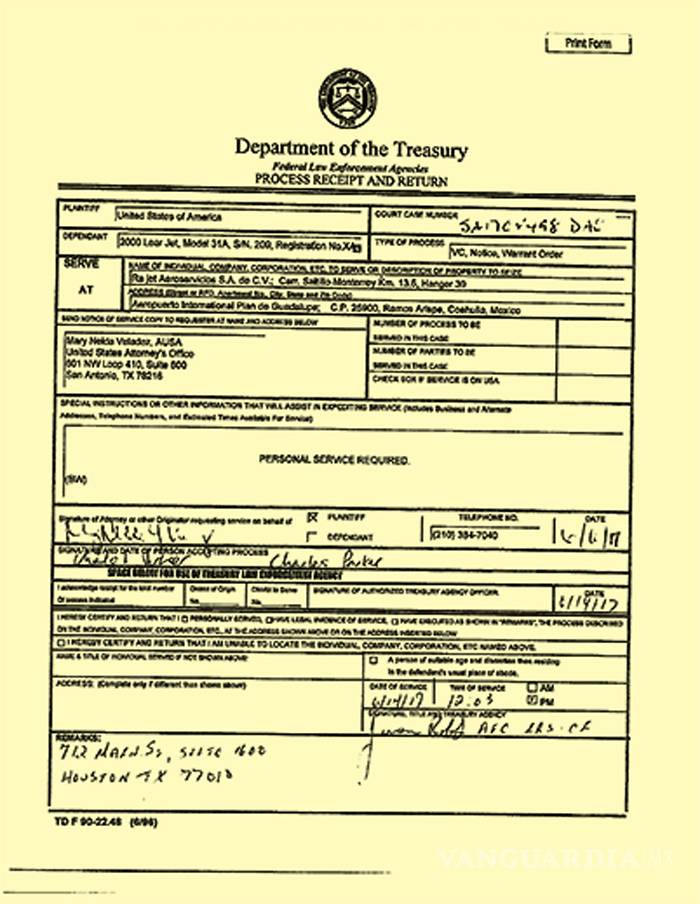 Print Form
Department of the Treasury
Federal Law Enforcement Agencies
PROCESS RECEIPT AND RETURN
PLAINTIFF
United States of America
COURT CASE NUMBER
DEFENDANT
2000 Lear Jet, Model 31A, S/N, 209, Registration No.
TYPE OF PROCESS
VC, Notice, Warrant Order
SERVE
AT
NAME OF INDIVIDUAL, COMPANY, CORPORATION, ETC. TO SERVE OR DESCRIPTION OF PROPERTY TO SEIZE
Ra jet Aeroservicios S.A. de C.V.; Carr. Saltillo-Monterrey Km. 13.5, Hanger 39
ADDRESS (Street or RFD, Apartment No., City, State and Zip Code)
Aeropuerto International Plan de Guadalupe; C.P. 25900, Ramos Arispe, Coahuila, Mexico
SEND NOTICE OF SERVICE COPY TO REQUESTER AT NAME AND ADDRESS BELOW
Mary Nelda Valadez, AUSA
United States Attorney's Office
601 NW Loop 410, Suite 600
San Antonio, TX 78216
NUMBER OF PROCESS TO BE
SERVED IN THIS CASE
NUMBER OF PARTIES TO BE
SERVED IN THIS CASE
CHECK BOX IF SERVICE IS ON USA
SPECIAL INSTRUCTIONS OR OTHER INFORMATION THAT WILL ASSIST IN EXPEDITING SERVICE (Includes Business and Alternate
Addresses, Telephone Numbers, and Estimated Times Available For Service)
PERSONAL SERVICE REQUIRED.
(BW)
Signature of Attorney or other Originator requesting service on behalf of
PLAINTIFF
DEFENDANT
TELEPHONE NO.
(210) 384-7040
DATE
SIGNATURE AND DATE OF PERSON ACCEPTING PROCESS
Charles Parker
SPACE BELOW FOR USE OF TREASURY LAW ENFORCEMENT AGENCY
I acknowledge receipt for the total number
Of process indicated
District of Origin
No.
District to Serve
No.
SIGNATURE OF AUTHORIZED TREASURY AGENCY OFFICER
DATE
6/14/17
I HEREBY CERTIFY AND RETURN THAT I PERSONALLY SERVED, HAVE LEGAL EVIDENCE OF SERVICE, HAVE EXECUTED AS SHOWN IN "REMARKS", THE PROCESS DESCRIBED
ON THE INDIVIDUAL, COMPANY, CORPORATION, ETC., AT THE ADDRESS SHOWN ABOVE OR ON THE ADDRESS INSERTED BELOW
I HEREBY CERTIFY AND RETURN THAT I AM UNABLE TO LOCATE THE INDIVIDUAL, COMPANY, CORPORATION, ETC NAMED ABOVE.
NAME & TITLE OF INDIVIDUAL SERVED IF NOT SHOWN ABOVE:
A person of suitable age and discretion then residing
in the defendant's usual place of abode.
ADDRESS: (Complete only if different than shown above)
DATE OF SERVICE
6/14/17
TIME OF SERVICE
12:03
AM
PM
SIGNATURE, TITLE AND TREASURY AGENCY
REMARKS:
712 MAIN ST, SUITE 1600
HOUSTON TX 77010
TD F 90-22.48 (6/96)
VANGUARDIA MX